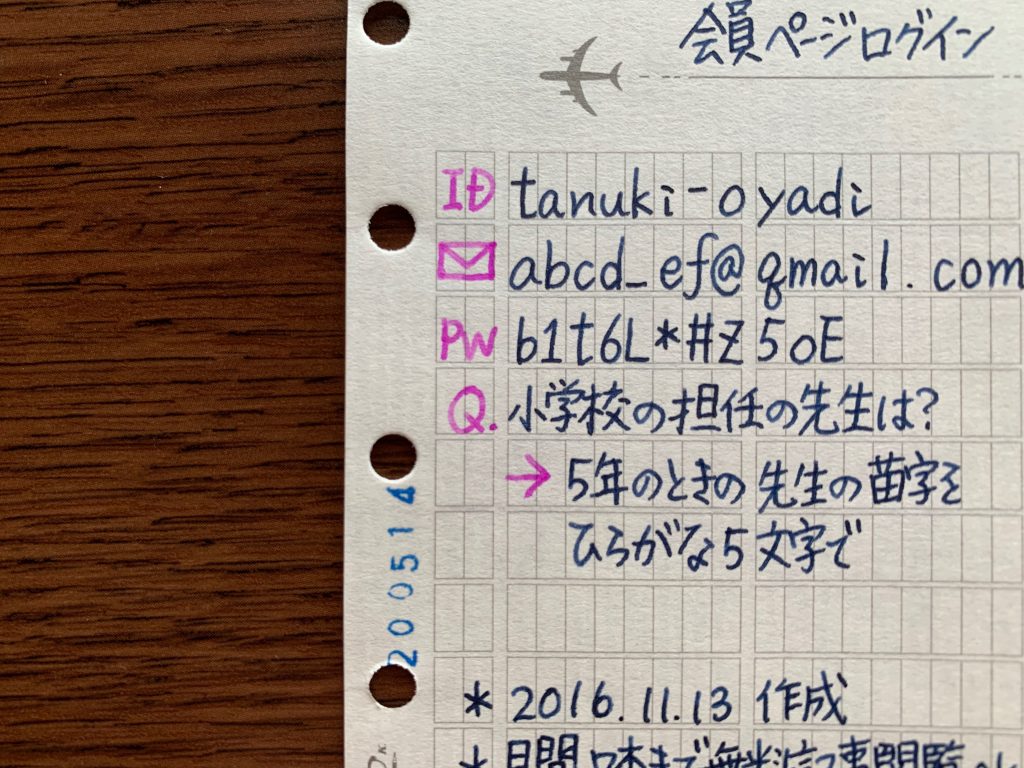 会員ページログイン
ID tanuki-oyadi
abcd_ef@qmail.com
PW b1t6L*#Z5oE
Q. 小学校の担任の先生は?
→ 5年のときの先生の苗字を
ひらがな5文字で
200514
* 2016.11.13 作成